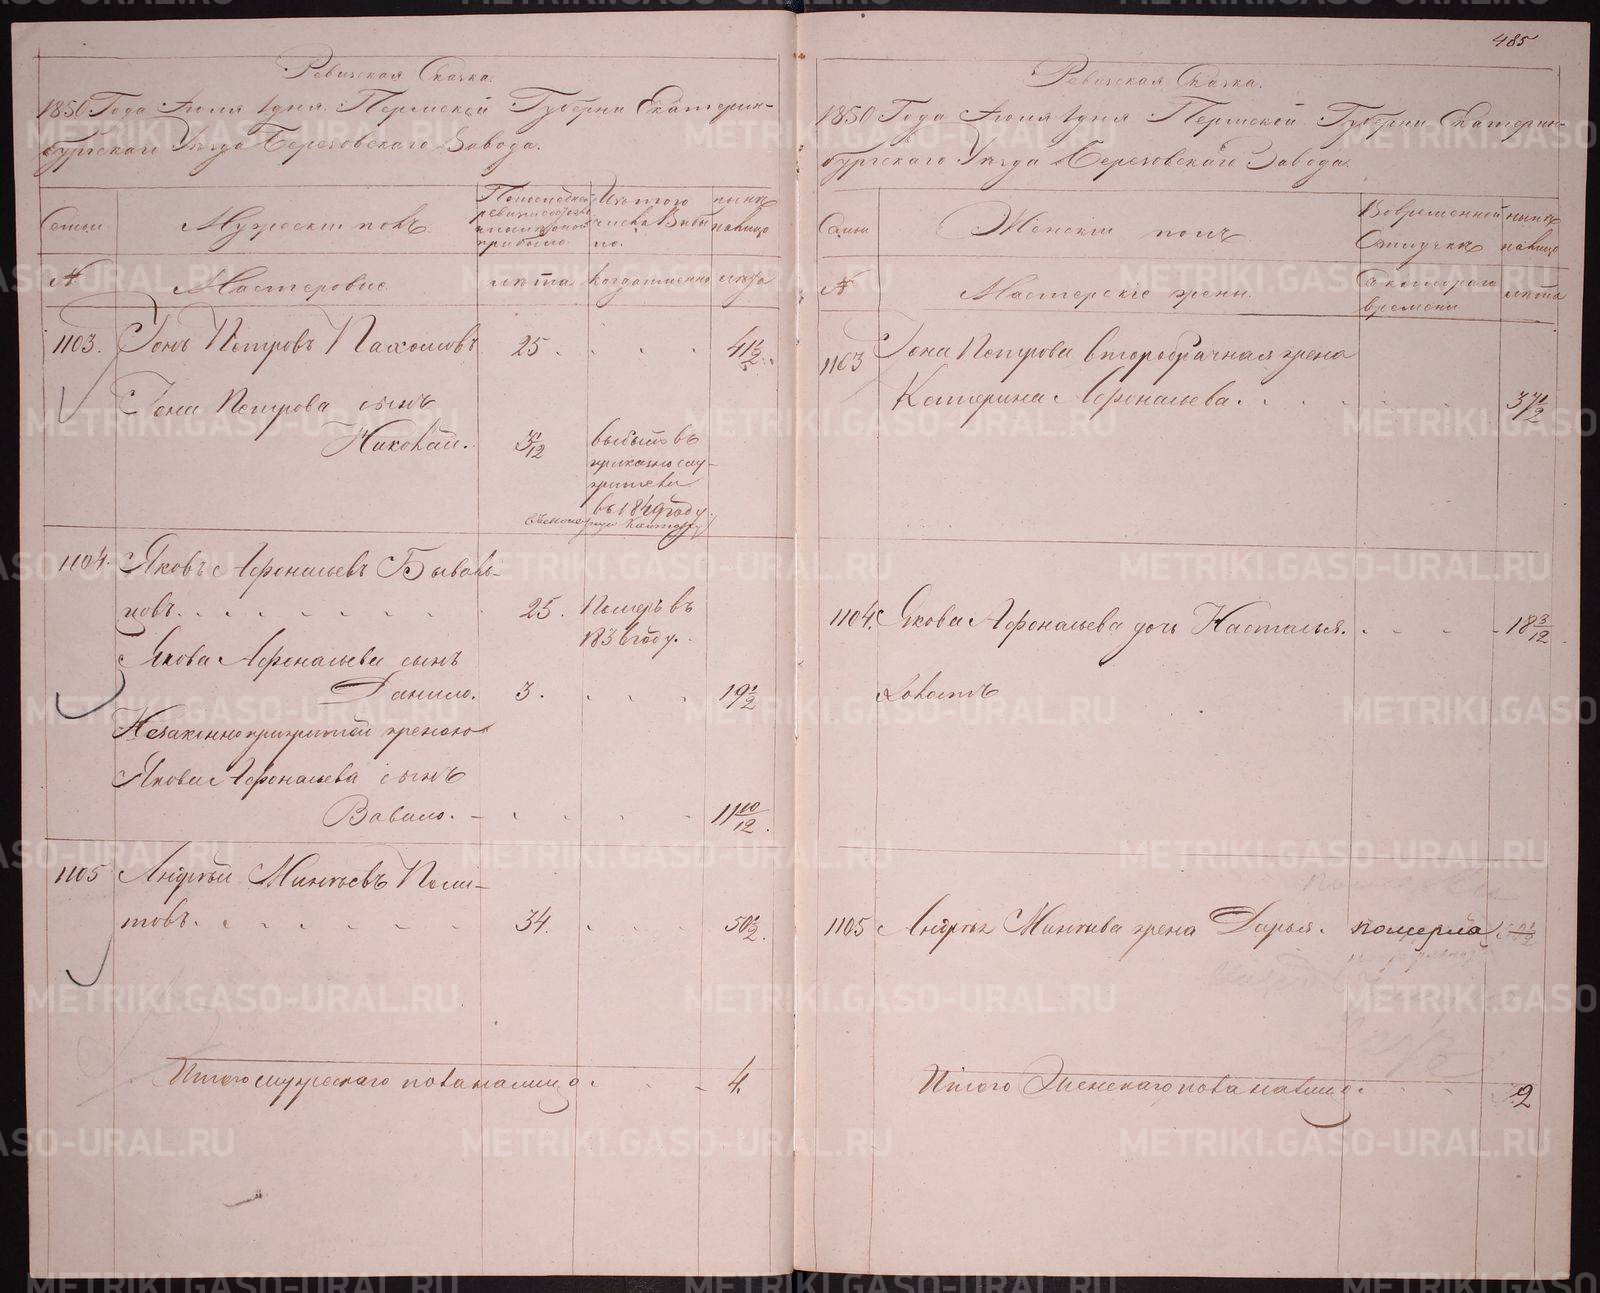 485
Ревизская Сказка.
1850 Года Июля 1 дня Пермской Губерни Екатерин-
бургскаго Уезда Березовскаго Завода.
Семьи
Мужескъ полъ.
По последней ревизии
Изъ того числа выбы-
ло.
ныне
налицо
№
Мастеровые
лета
когда именно
лета
1103. Iонъ Петровъ Пахомовъ 25 . . . . 41 1/2
Iона Петрова сынъ
Николай. 3/12 выбылъ въ
приказно слу-
жители
въ 1849 году
1104. Яковъ Афонасьевъ Бываль-
цовъ. . . . . . . 25. Померъ въ
1836 году.
Якова Афонасьева сынъ
Данило. 3. . . . 19 1/2
Незаконноприжитой женою
Якова Афонасьева сынъ
Вавило. - . . . . 11 10/12.
1105 Андрей Минеевъ Поли-
товъ. . . . . . . 34. . . . 50 1/2.
Итого мужескаго пола налицо. . . - 4.
Ревизская Сказка.
1850 Года Июля 1 дня Пермской Губерни Екатерин-
бургскаго Уезда Березовскаго Завода.
Семьи
Женскiй полъ
Во временной
Отлучке
ныне
налицо
№
Мастерскiе жены
С котораго
времени
лета
1103 Iона Петрова второбрачная жена
Катерина Афонасьева. . . . . 37 1/2
1104. Якова Афонасьева дочь Настасья. . . . - 18 3/12
1105 Андрея Минеева жена Дарья. померла
Итого Женскаго пола налицо. . . . 2
METRIKI.GASO-URAL.RU